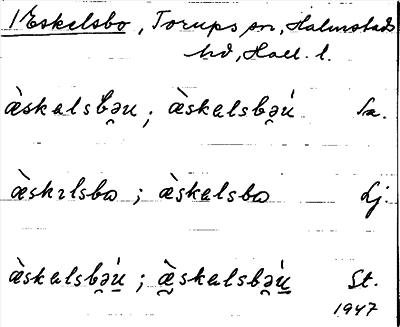 1 Eskelsbo, Torups sn, Halmstads
hd, Hall. l.
æ̀skəlsbə̯u ; æ̀skəlsbə̯ú Sa.
æ̀skɪlsbɷ ; æ̀skəlsbɷ Lj.
æ̀skəlsbə̯ú̲ ; æ̲̀skəlsbə̯ú̲ St.
1947